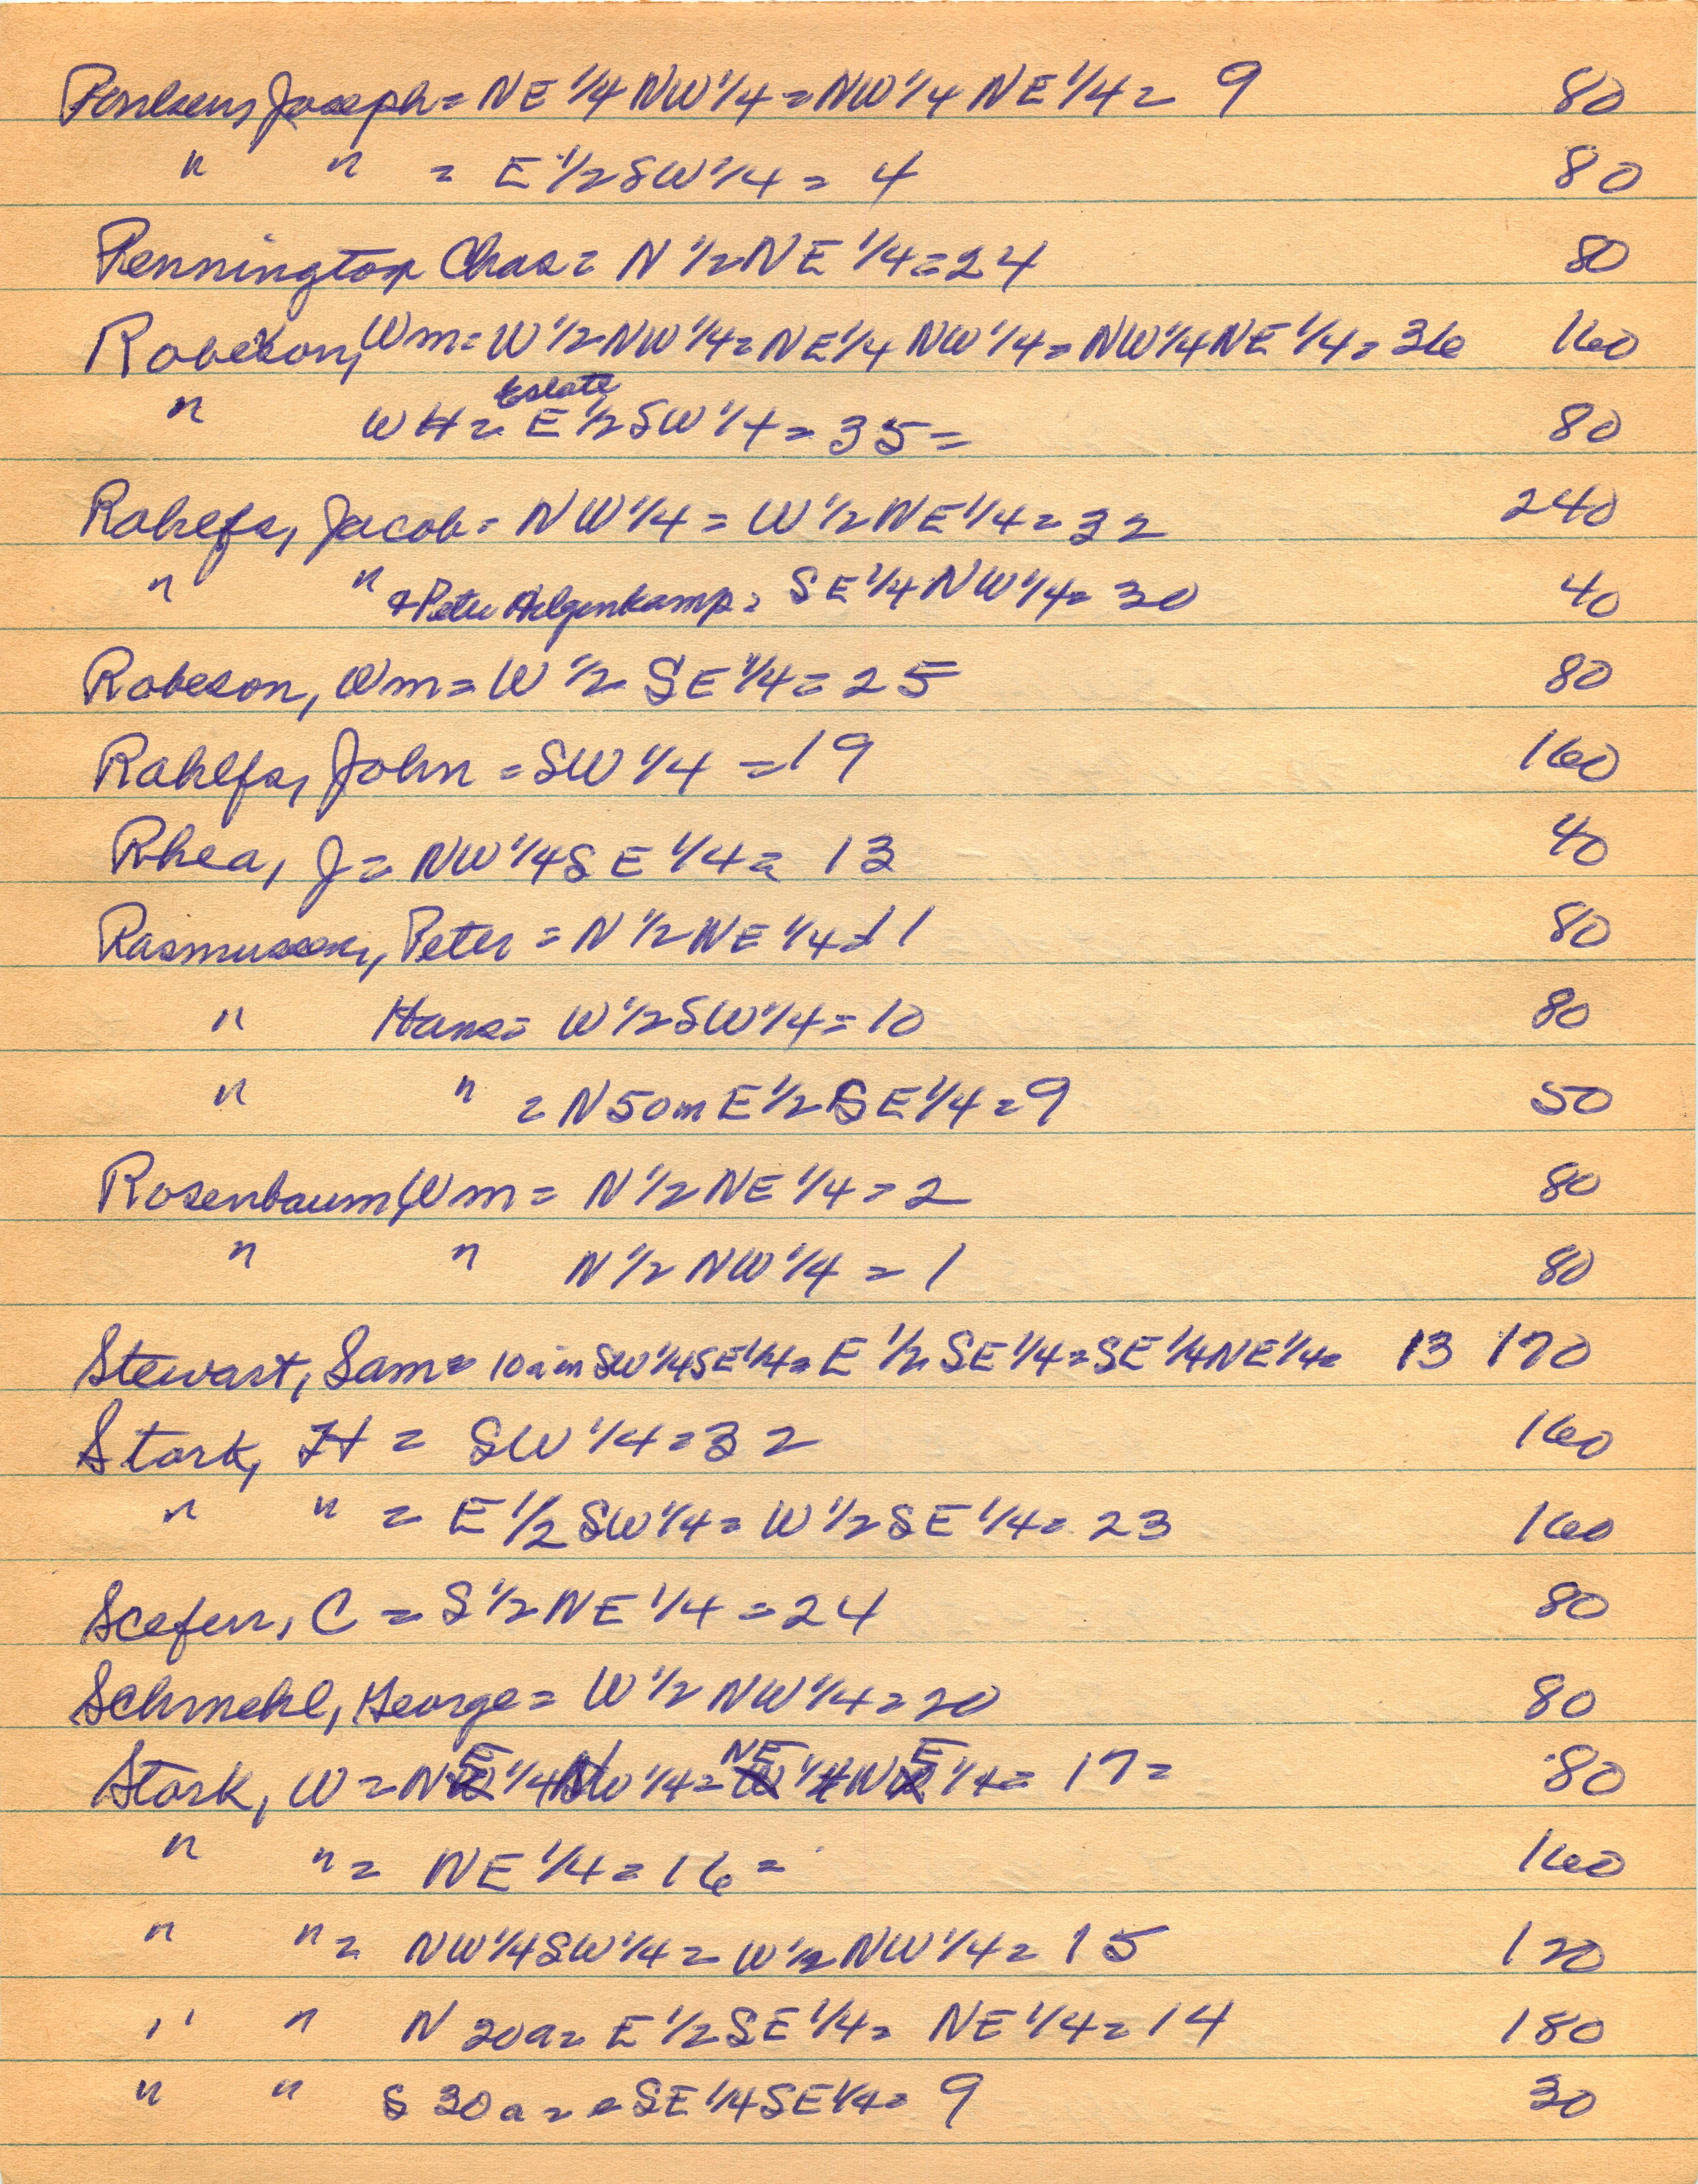 Poulsen, Joseph = NE 1/4 NW 1/4 = NW 1/4 NE 1/4 = 9 80
" " = E 1/2 SW 1/4 = 4 80
Pennington Chas = N 1/2 NE 1/4 = 24 80
Robeson, Wm = W 1/2 NW 1/4 = NE 1/4 NW 1/4 = NW 1/4 NE 1/4 = 36 160
" WH = Estate E 1/2 SW 1/4 = 35 = 80
Rahlfs, Jacob = NW 1/4 = W 1/2 NE 1/4 = 32 240
" " & Peter Hilgenkamp = SE 1/4 NW 1/4 = 30 40
Robeson, Wm = W 1/2 SE 1/4 = 25 80
Rahlfs, John = SW 1/4 = 19 160
Rhea, J = NW 1/4 SE 1/4 = 13 40
Rasmussen, Peter = N 1/2 NE 1/4 = 11 80
" Hans = W 1/2 SW 1/4 = 10 80
" " = N 50 in E 1/2 SE 1/4 = 9 50
Rosenbaum, Wm = N 1/2 NE 1/4 = 2 80
" " N 1/2 NW 1/4 = 1 80
Stewart, Sam = 10 a in SW 1/4 SE 1/4 = E 1/2 SE 1/4 = SE 1/4 NE 1/4 = 13 170
Stork, H = SW 1/4 = 32 160
" " = E 1/2 SW 1/4 = W 1/2 SE 1/4 = 23 160
C = S 1/2 NE 1/4 = 24 80
Schmehl, George = W 1/2 NW 1/4 = 20 80
Stork, W = NE 1/4 NW 1/4 = NE 1/4 NE 1/4 = 17 = 80
" " = NE 1/4 = 16 = 160
" " = NW 1/4 SW 1/4 = W 1/2 NW 1/4 = 15 120
" " N 20a = E 1/2 SE 1/4 = NE 1/4 = 14 180
" " S 30 a = = SE 1/4 SE 1/4 = 9 30